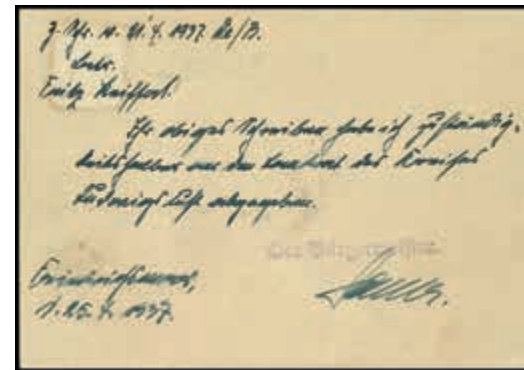 z. Schr. v. 21.4.1937 Re/B.
betr.
Fritz Reiffert.
Ihr obiges Schreiben habe ich zuständig-
keitshalber an den Landrat des Kreises
Ludwigslust abgegeben.
Der Bürgermeister.
d. 25. 4. 1937.